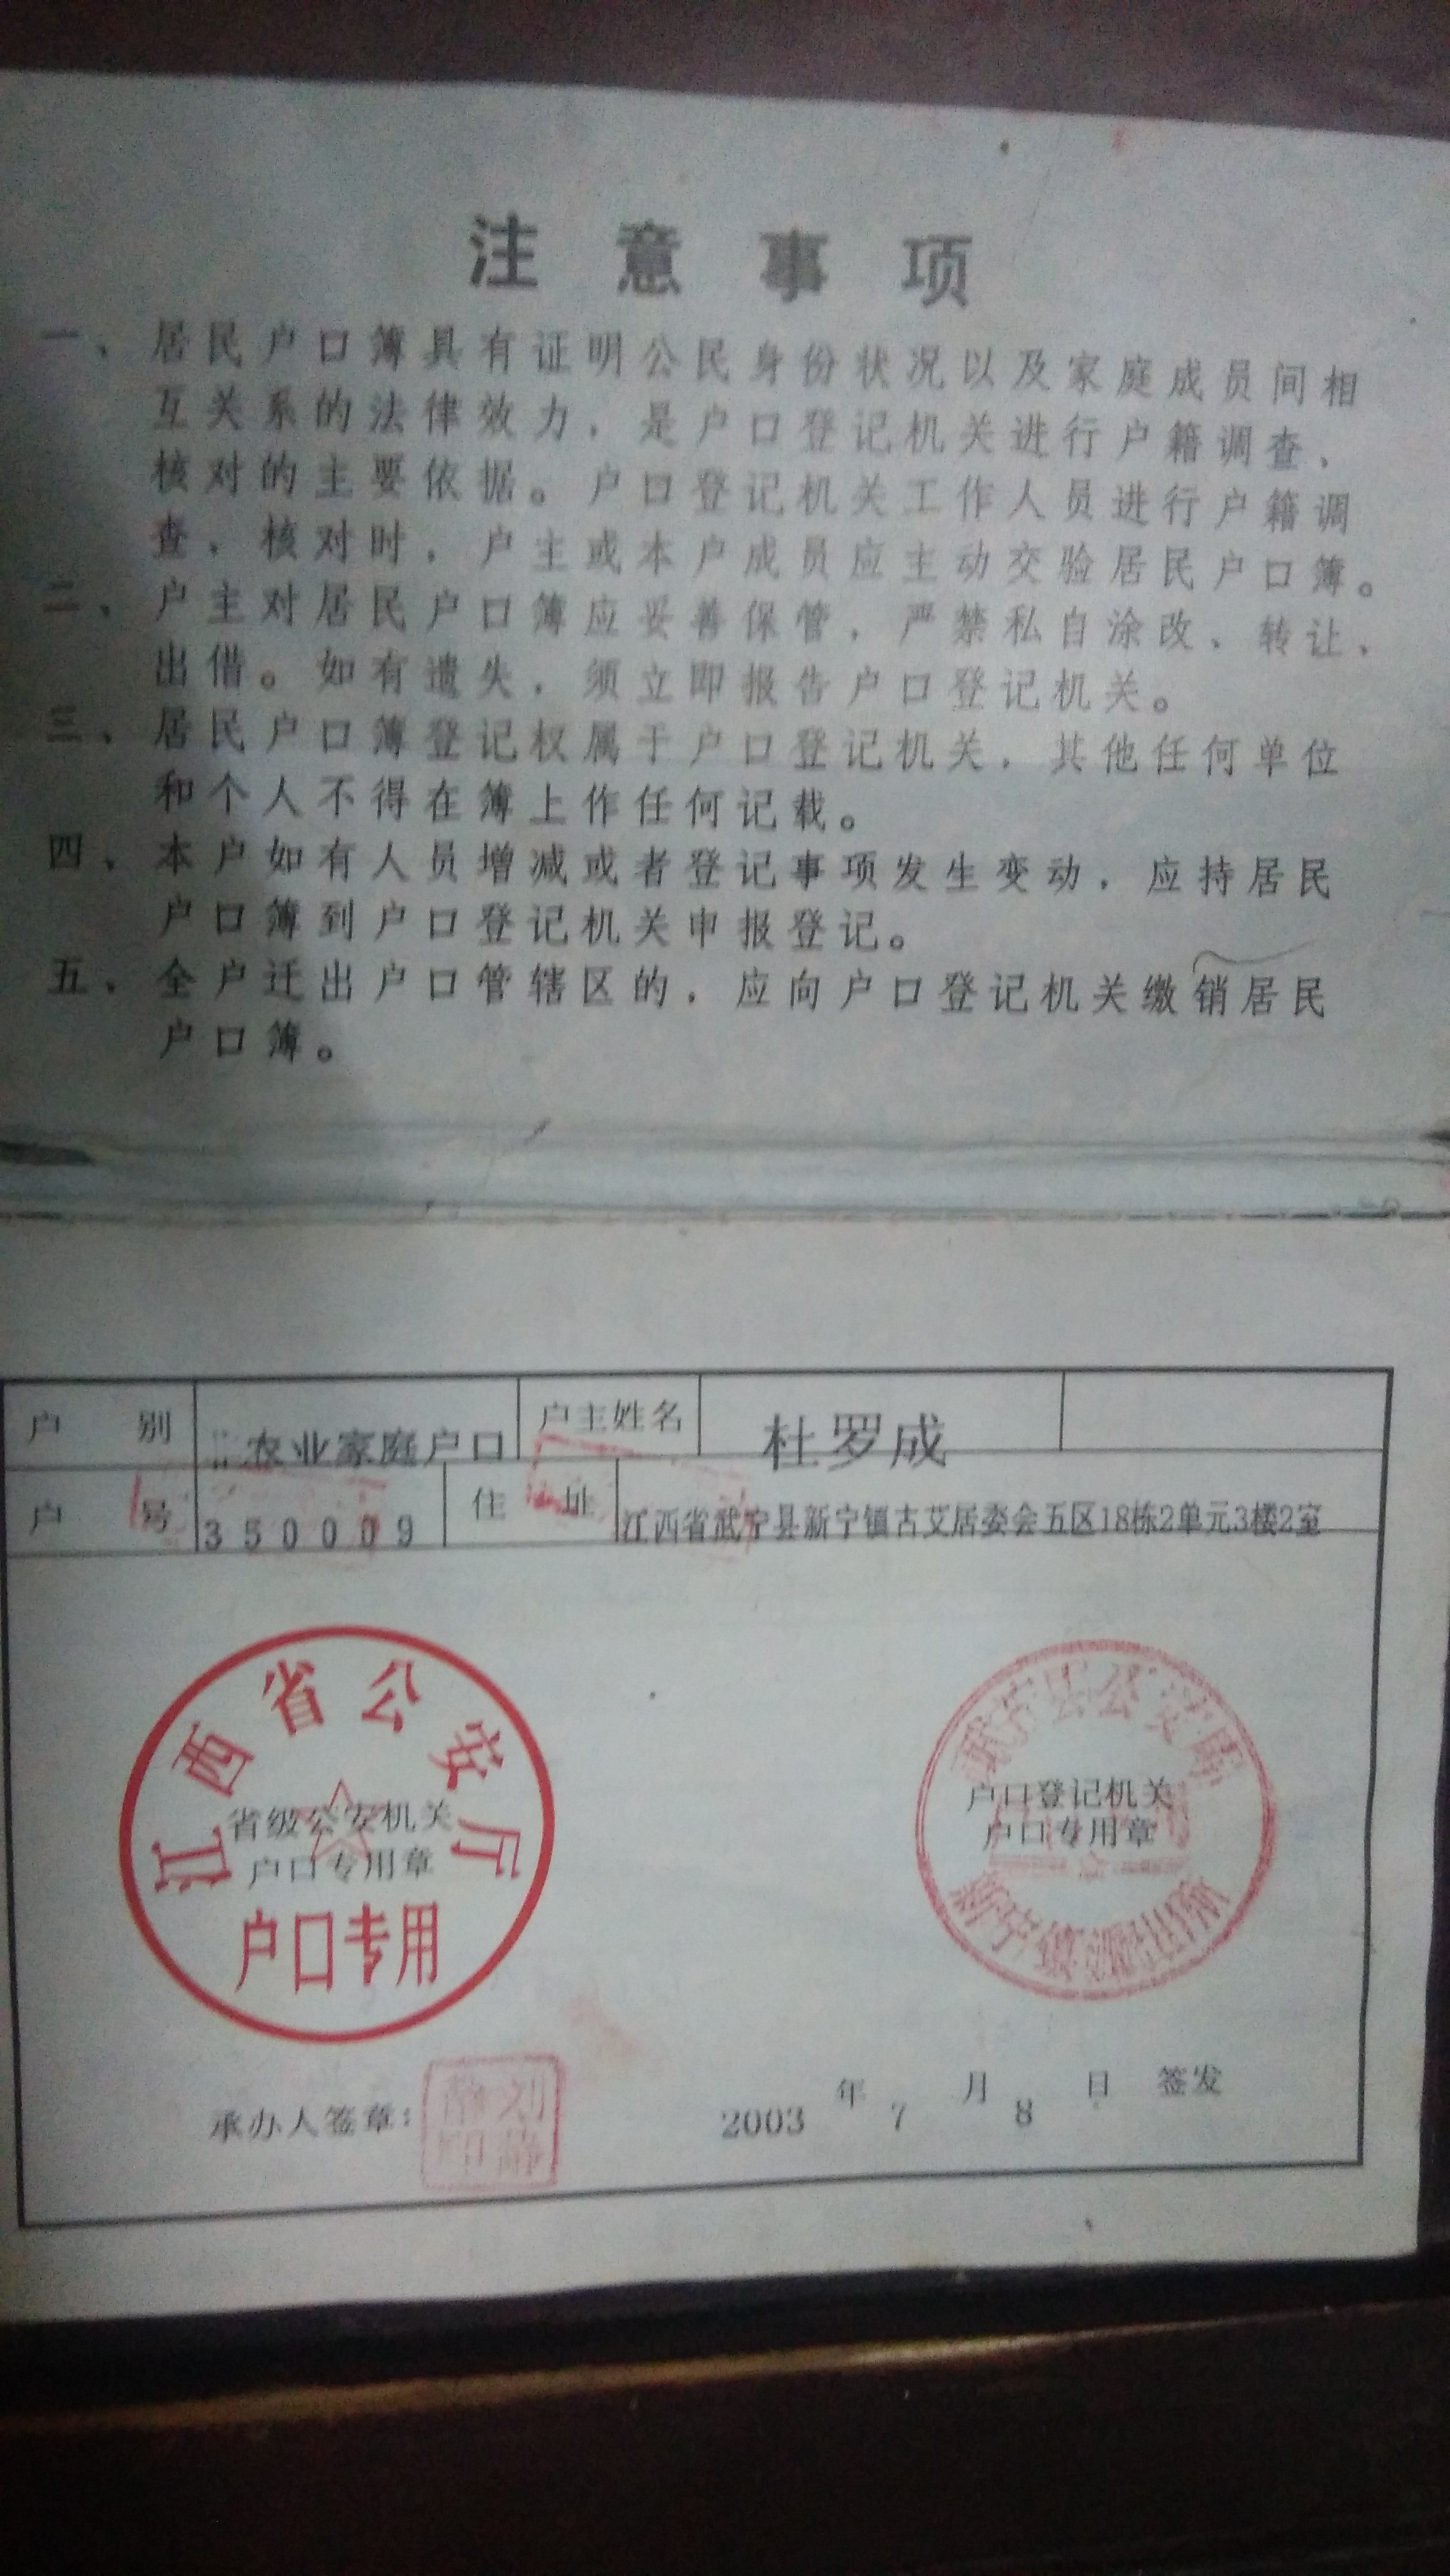 注意事项
一、居民户口簿具有证明公民身份状况以及家庭成员间相
互关系的法律效力，是户口登记机关进行户籍调查、
核对的主要依据。户口登记机关工作人员进行户籍调
查、核对时，户主或本户成员应主动交验居民户口簿。
二、户主对居民户口簿应妥善保管，严禁私自涂改、转让、
出借。如有遗失，须立即报告户口登记机关。
三、居民户口簿登记权属于户口登记机关，其他任何单位
和个人不得在簿上作任何记载。
四、本户如有人员增减或者登记事项发生变动，应持居民
户口簿到户口登记机关申报登记。
五、全户迁出户口管辖区的，应向户口登记机关缴销居民
户口簿。
户别 农业家庭户口 户主姓名 杜罗成
户号 350009 住址 江西省武宁县新宁镇古艾居委会五区18栋2单元3楼2室
江西省公安厅
省级公安机关
户口专用章
户口专用
武宁县公安局
户口登记机关
户口专用章
新宁镇派出所
承办人签章： 2003年7月8日签发